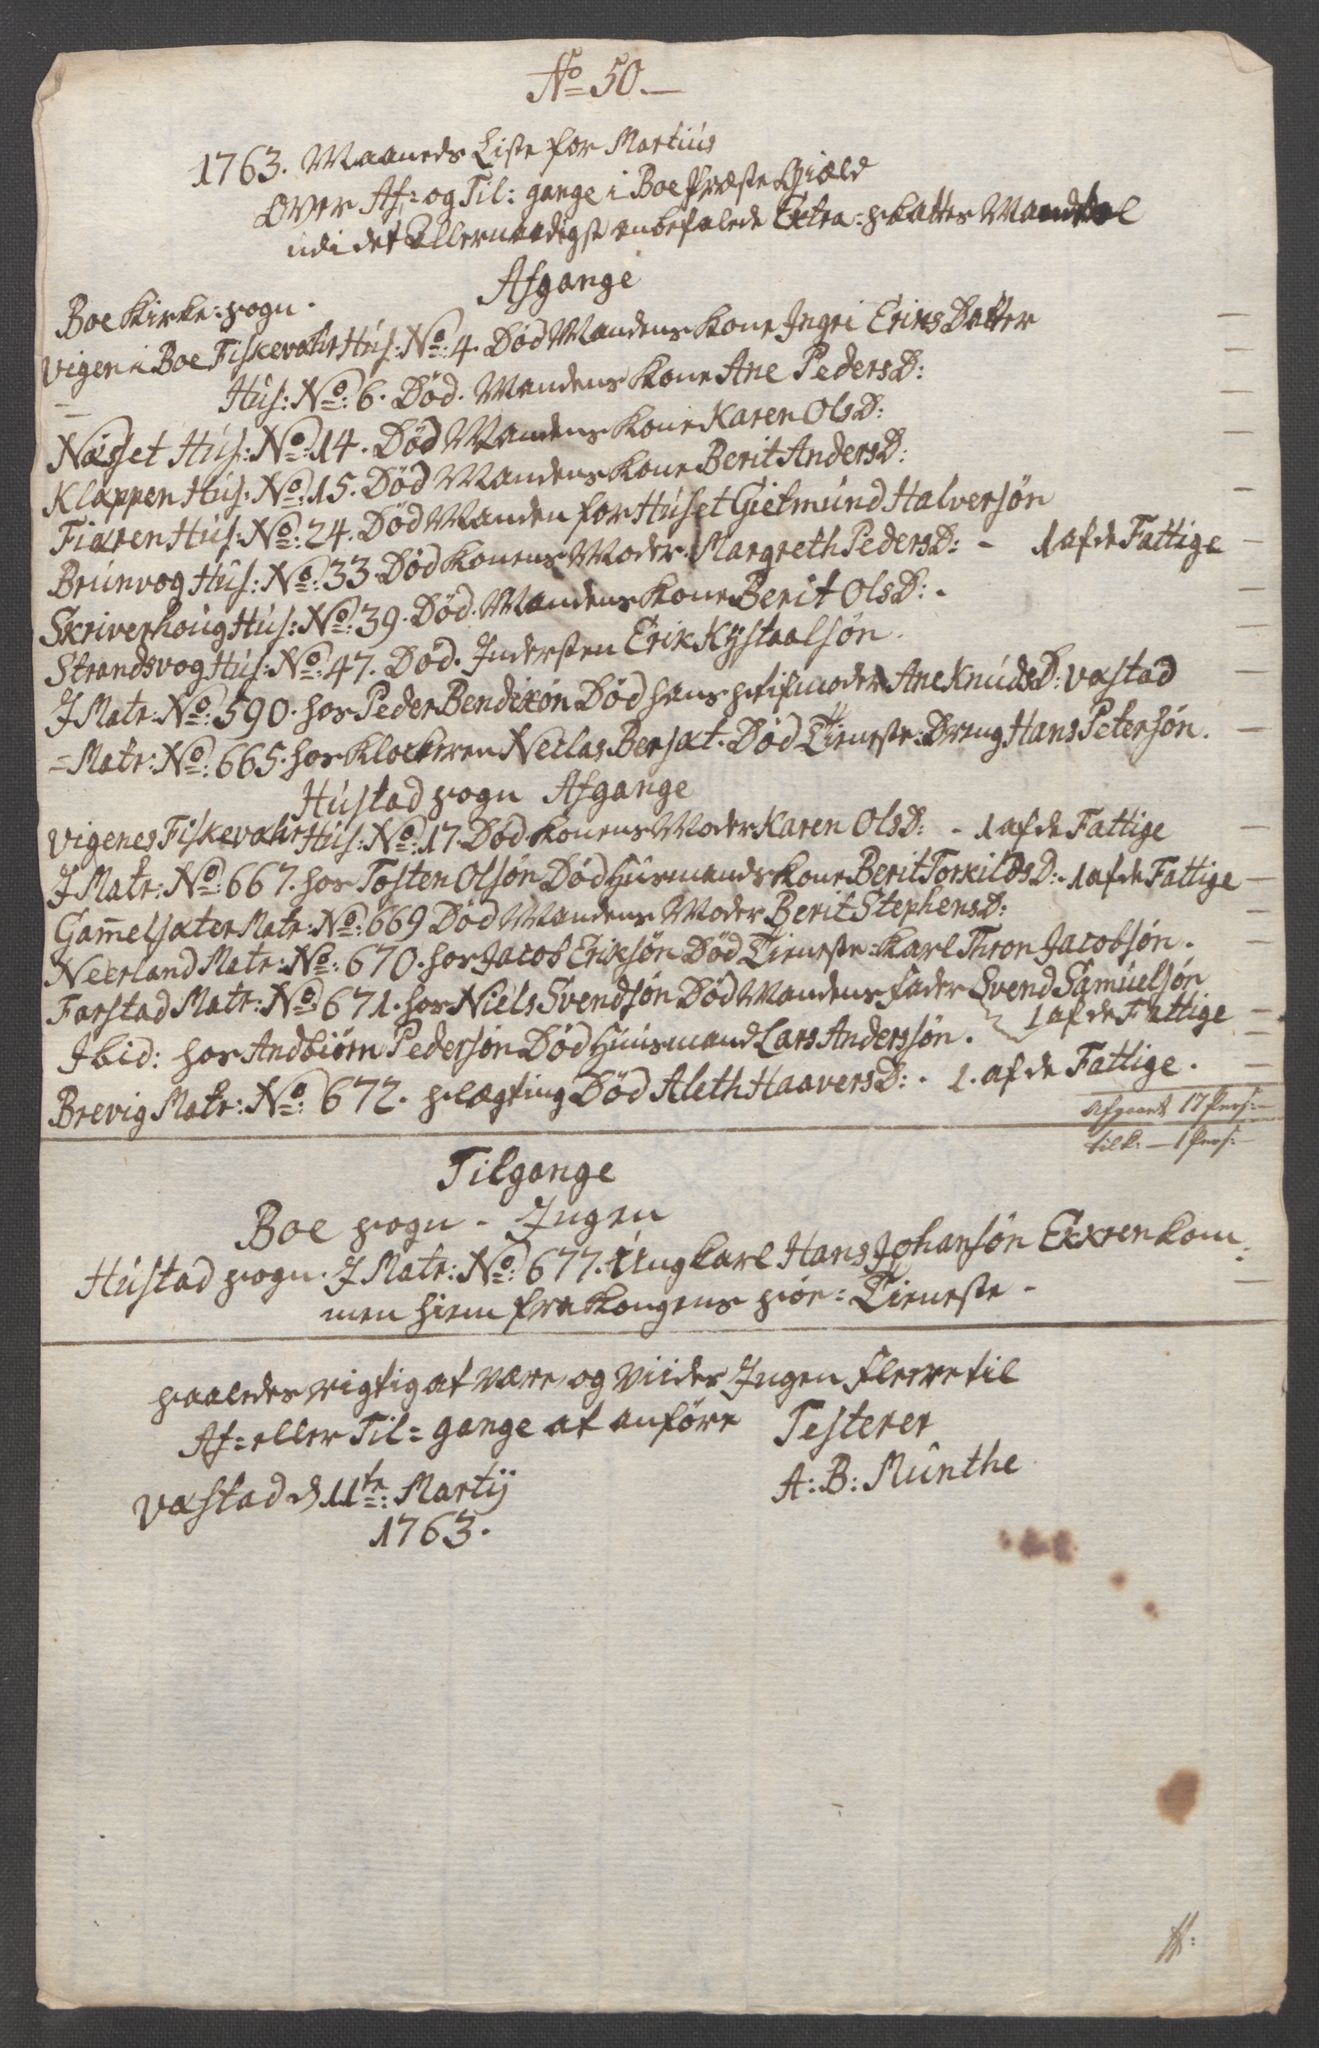 No 50.
1763. Maaneds Liste for Martius
Over Af= og Til= gange i Boe Præste Giæld
udi det Allernaadigst anbefalede Extra= skattes Mandtal
Afgange
Boe Kirke= sogn.
Vigen i Boe Fiskevahr Hus: No: 4. Død Mandens Kone Ingri Eriks Datter
Hus: No: 6. Død. Mandens Kone Ane PedersD:
Næsset Hus: No: 14. Død Mandens Kone Karen OlsD:
Klappen Hus: No: 15. Død Mandens Kone Berit AndersD:
Fiæren Hus: No: 24. Død Manden for Huset Gietmund Halversøn
Brunvog Hus: No: 33 Død Konens Moder Margreth PedersD: - 1 af de Fattige
Skriverhoug Hus: No: 39. Død. Mandens Kone Berit OlsD: .
Strandsvog Hus: No: 47. Død. Indersten Erik Kystaalsøn.
I Matr: No: 590. hos Peder Bendixøn Død hans Stifmoder Ane KnudsD: Vastad
= Matr: No: 665. hos Klockeren Neclas Bersat. Død Tieneste= Dreng Hans Petersøn.
Hustad sogn Afgange
Vigenes Fiskevahr Hus: No: 17. Død Konens Moder Karen OlsD: - 1 af de Fattige
I Matr: No: 667. hos Tosten Olsøn Død Husmands Kone Berit TorkildsD: - 1 af de Fattige
Gam̄elsæter Matr: No: 669 Død Mandens Moder Berit StephensD:
Neerland Matr: No: 670. hos Jacob Eriksøn Død Tieneste= Karl Thron Jacobsøn.
Farstad Matr: No: 671. hos Niels Svendsøn Død Mandens Fader Svend Samuelsøn
1 af de Fattige
Ibid: hos Andbiørn Pedersøn Død Huusmand Lars Anderssøn.
Brevig Matr: No: 672. Slægting Død Aleth HaaversD: . 1. af de Fattige.
Afgaaet 17 Pers:
tilk: — 1 Pers:
Tilgange
Boe sogn - Ingen
Hustad sogn. I Matr: No: 677. Ungkarl Hans Johansøn Exxren kom=
men hiem fra Kongens søe= Tieneste -
saaledes rigtig at være og viides Ingen fleere til
Af= eller Til= gange at anføre Testerer
Vastad d 11te: Martij A: B: Munthe
1763.